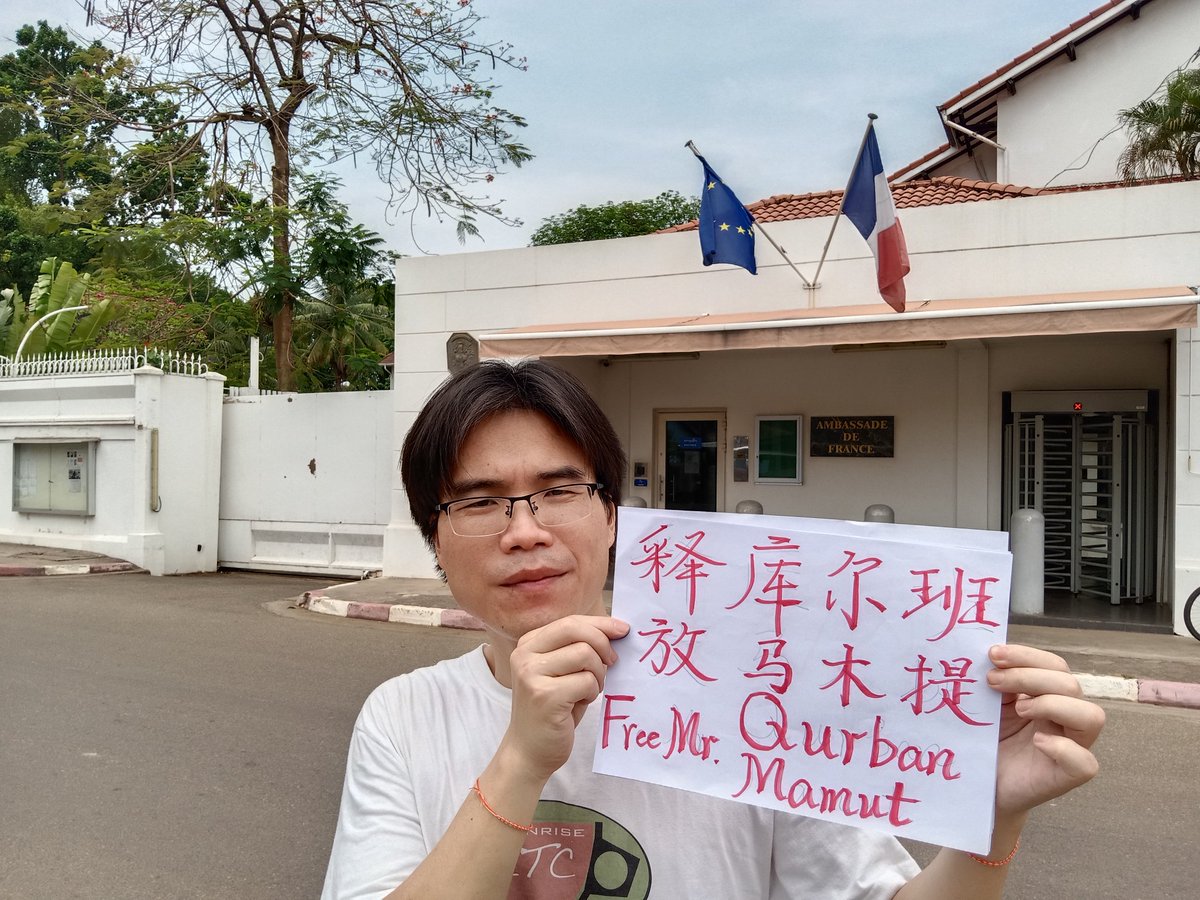 AMBASSADE
DE
FRANCE
释库尔班
放马木提
Free Mr. Qurban
Mamut
NRISE